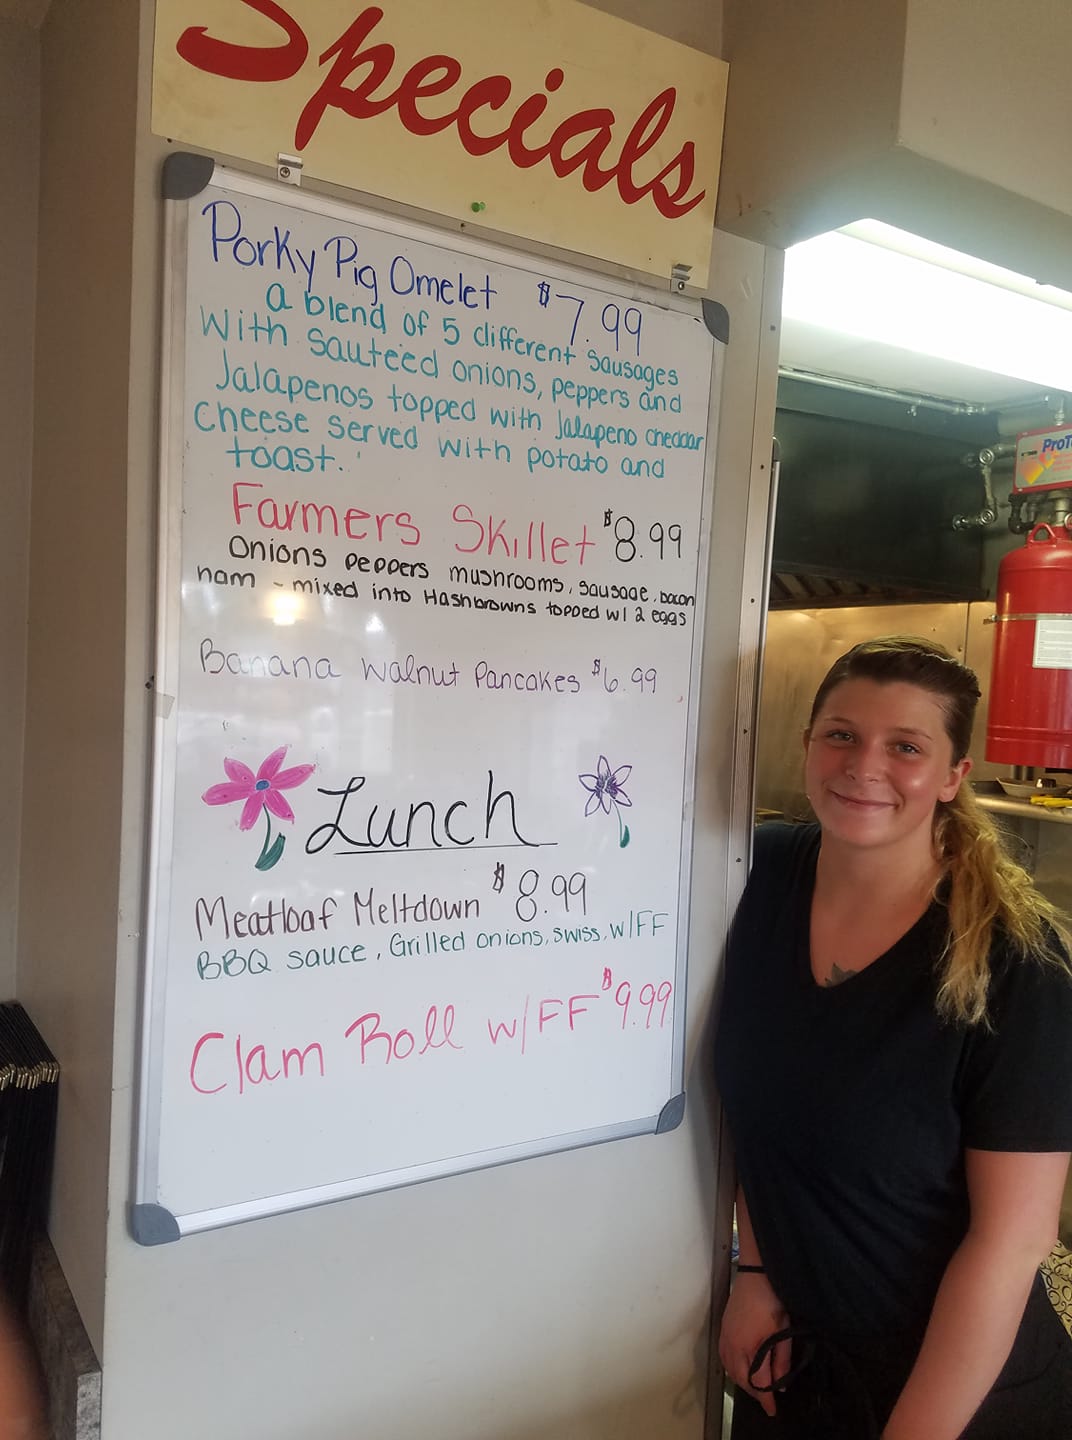 Specials
Porky Pig Omelet $7.99
a blend of 5 different sausages
With sauteed onions, peppers and
Jalapenos topped with Jalapeno cheddar
Cheese served with potato and
toast.
Farmers Skillet $8.99
Onions peppers mushrooms, sausage, bacon
ham - mixed into Hashbrowns topped w/ 2 eggs
Banana Walnut Pancakes $6.99
Lunch
Meatloaf Meltdown $8.99
BBQ sauce, Grilled onions, swiss, w/FF
Clam Roll w/FF $9.99